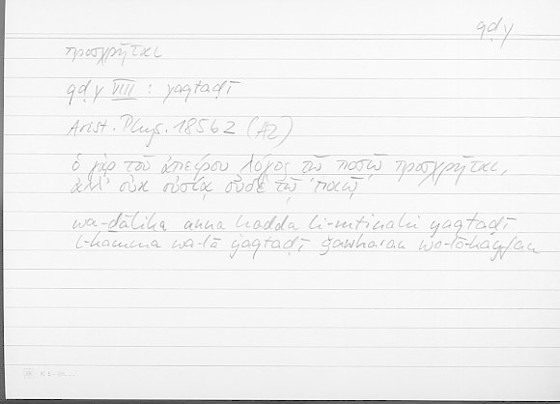 qḍy
προσχρῆται
qḍy VIII : yaqtaḍī
Arist. Phys. 185b2 (A2)
ὁ γὰρ τοῦ ἀπείρου λόγος τῷ ποσῷ προσχρῆται,
ἀλλ' οὐκ οὐσίᾳ οὐδὲ τῷ ποιῷ
wa-ḏālika anna ḥadda li-mtināhi yaqtaḍī
l-kammīya wa-lā yaqtaḍī ǧawharan wa-lā